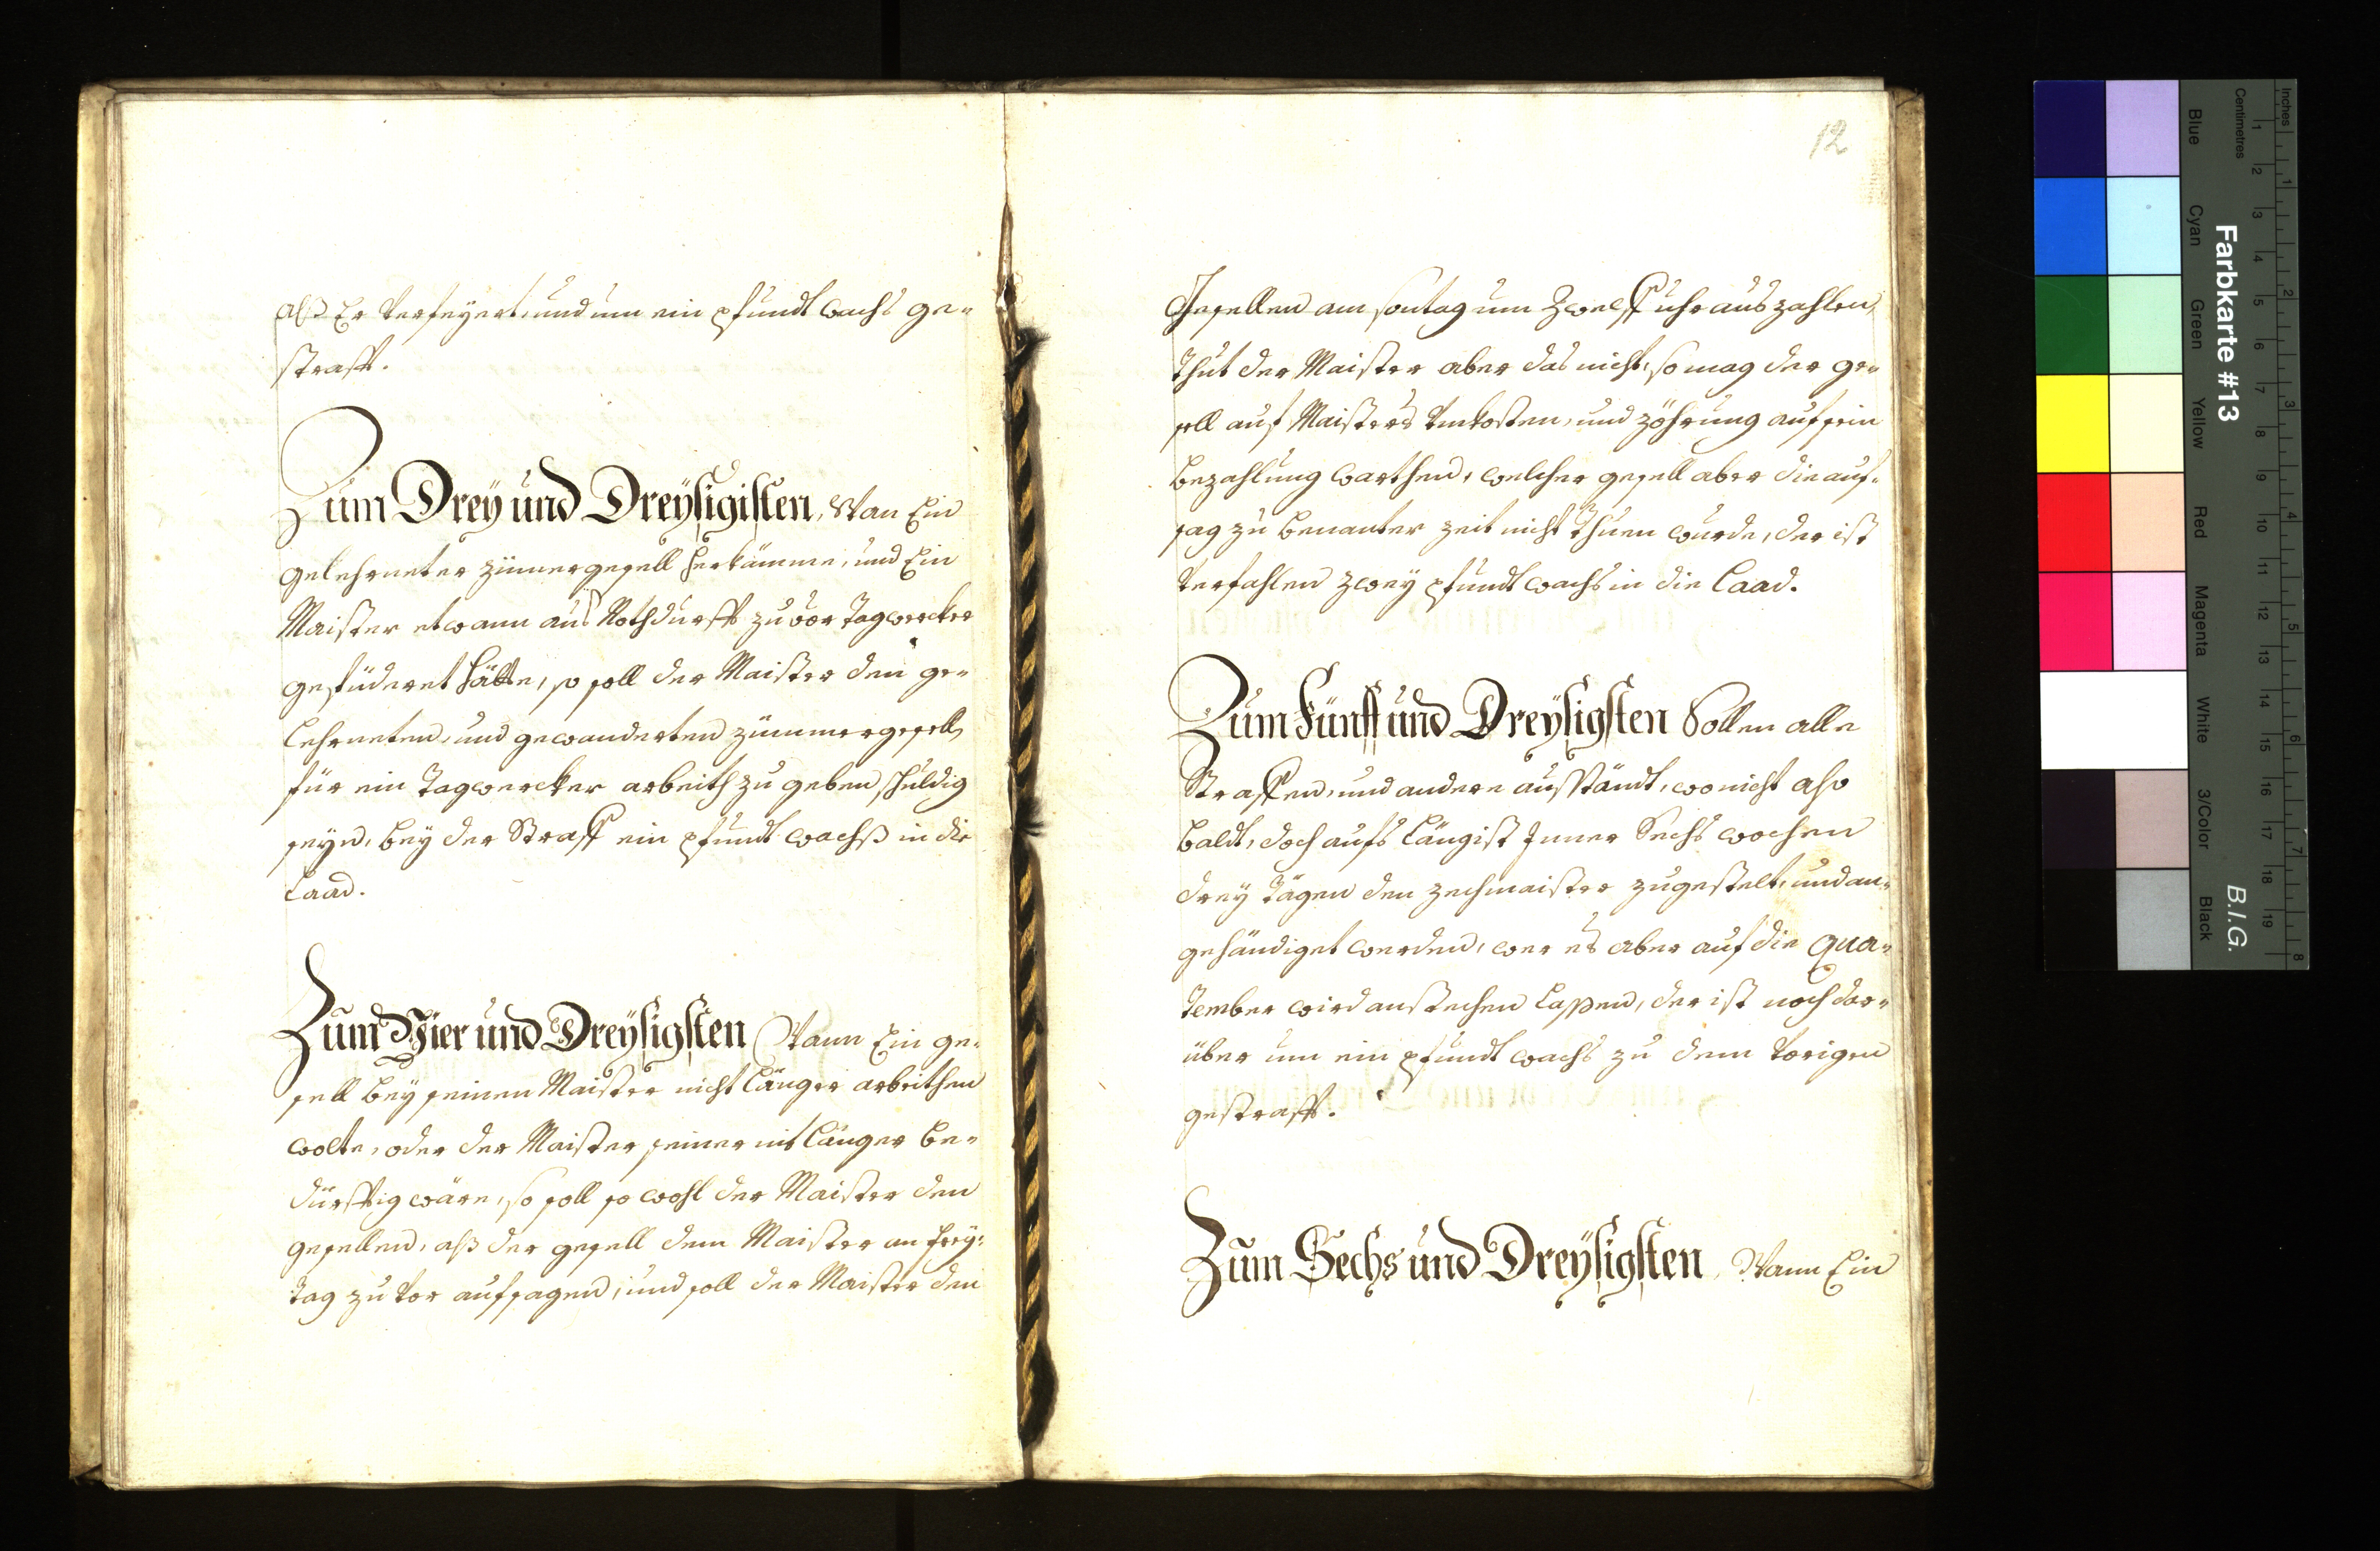 alß Er verfeyert, und um ein pfundt wachs ge-
strafft.
Zum Drey und Dreysigisten, Wan Ein
gelehrneter zimergesell herkämme, und Ein
Maister etwann aus Nothdurfft zuvor Tagwercker
gefüderet hätte, so soll der Maister den ge-
lehrneten, und gewanderten zimmergesell,
für ein Tagwercker arbeith zu geben schuldig
seyn, bey der Straff ein pfundt wachß in die
Laad.
Zum Vier und Dreysigsten Wann Ein ge-
sell bey seinen Maister nicht länger arbeithen
wolte, oder der Maister seiner nit länger be-
dürfftig wäre, so soll so wohl der Maister den
gesellen, alß der gesell dem Maister an Frey-
tag zu vor aufsagen, und soll der Maister den
12
Gesellen am sontag um Zwelff uhr auszahlen,
thut der Maister aber das nicht, so mag der ge-
sell auf Maisters Unkosten, und zöhrung auf sein
bezahlung warthen, welcher gesell aber die auf-
sag zu benanter zeit nicht thuen wurde, der ist
verfahlen zwey pfundt wachs in die Laad.
Zum Fünff und Dreysigsten Sollen alle
Straffen, und andere ausständt, wo nicht also
baldt, doch aufs längist Inner Sechs wochen
drey tägen den zechmaister zugestelt, und an-
gehändiget werden, wer es aber auf die Qua-
tember wird anstechen lassen, der ist noch dar-
über um ein pfundt wachs zu dem vorigen
gestrafft.
Zum Sechs und Dreysigsten, Wann Ein
Farbkarte #13
B.I.G.
Inches
Centimetres
Blue
Cyan
Green
Yellow
Red
Magenta
White
3/Color
Black